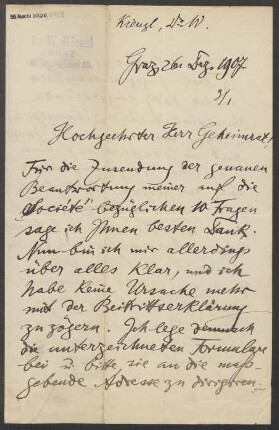 Kienzl, Dr W.
Graz 26. Dez. 1907
3/1
Hochgeehrter Herr Geheimrat!
Für die Zusendung der genauen
Beantwortung meiner auf die
Société bezüglichen 10 Fragen
sage ich Ihnen besten Dank.
Nun bin ich mir allerdings
über alles klar, und ich
habe keine Ursache mehr
mit der Beitrittserklärung
zu zögern. Ich lege demnach
die unterzeichneten Formulare
bei u. bitte, sie an die maß-
gebende Adresse zu dirigieren.